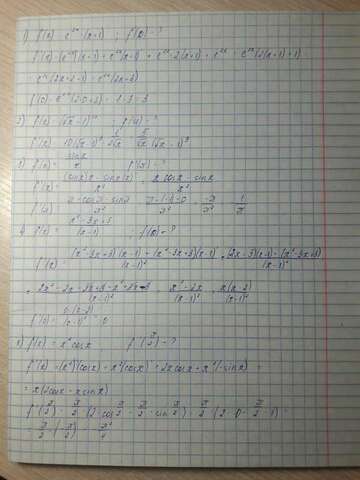 1) f(x) = e^{2x}·(x+1) ; f'(0) - ?
f'(x) = (e^{2x})'(x+1) + e^{2x}(x+1)' = e^{2x}·2(x+1) + e^{2x} = e^{2x}(2(x+1)+1)
e^{2x}(2x+2+1) = e^{2x}(2x+3)
f'(0) = e^{2·0}(2·0+3) = 1·3 = 3
2) f(x) = (√x - 1)^{10} ; f'(4) - ?
f'(x) = 10(√x - 1)^9 · 1/(2√x) = 5/√x (√x - 1)^9
3) f(x) = sinx/x f'(π) - ?
f'(x) = ((sinx)'x - sinx(x)')/x² = (x cosx - sinx)/x²
f'(π) = (π·cosπ - sinπ)/π² = (π·(-1) - 0)/π² = -π/π² = -1/π
4) f(x) = (x² - 3x + 3)/(x-1) ; f'(0) - ?
f'(x) = ((x² - 3x + 3)'(x-1) - (x² - 3x + 3)(x-1)')/(x-1)² = ((2x-3)(x-1) - (x² - 3x + 3))/(x-1)²
= (2x² - 2x - 3x + 3 - x² + 3x - 3)/(x-1)² = (x² - 2x)/(x-1)² = x(x-2)/(x-1)²
f'(0) = 0(0-2)/(0-1)² = 0
f(x) = x² cosx f'(π/2) - ?
f'(x) = (x²)'(cosx) + x²(cosx)' = 2x cosx + x²(-sinx) =
= x(2cosx - x sinx)
f'(π/2) = π/2 · (2·cos π/2 - π/2 · sin π/2) = π/2 · (2·0 - π/2 · 1) =
= π/2 · (-π/2) = -π²/4